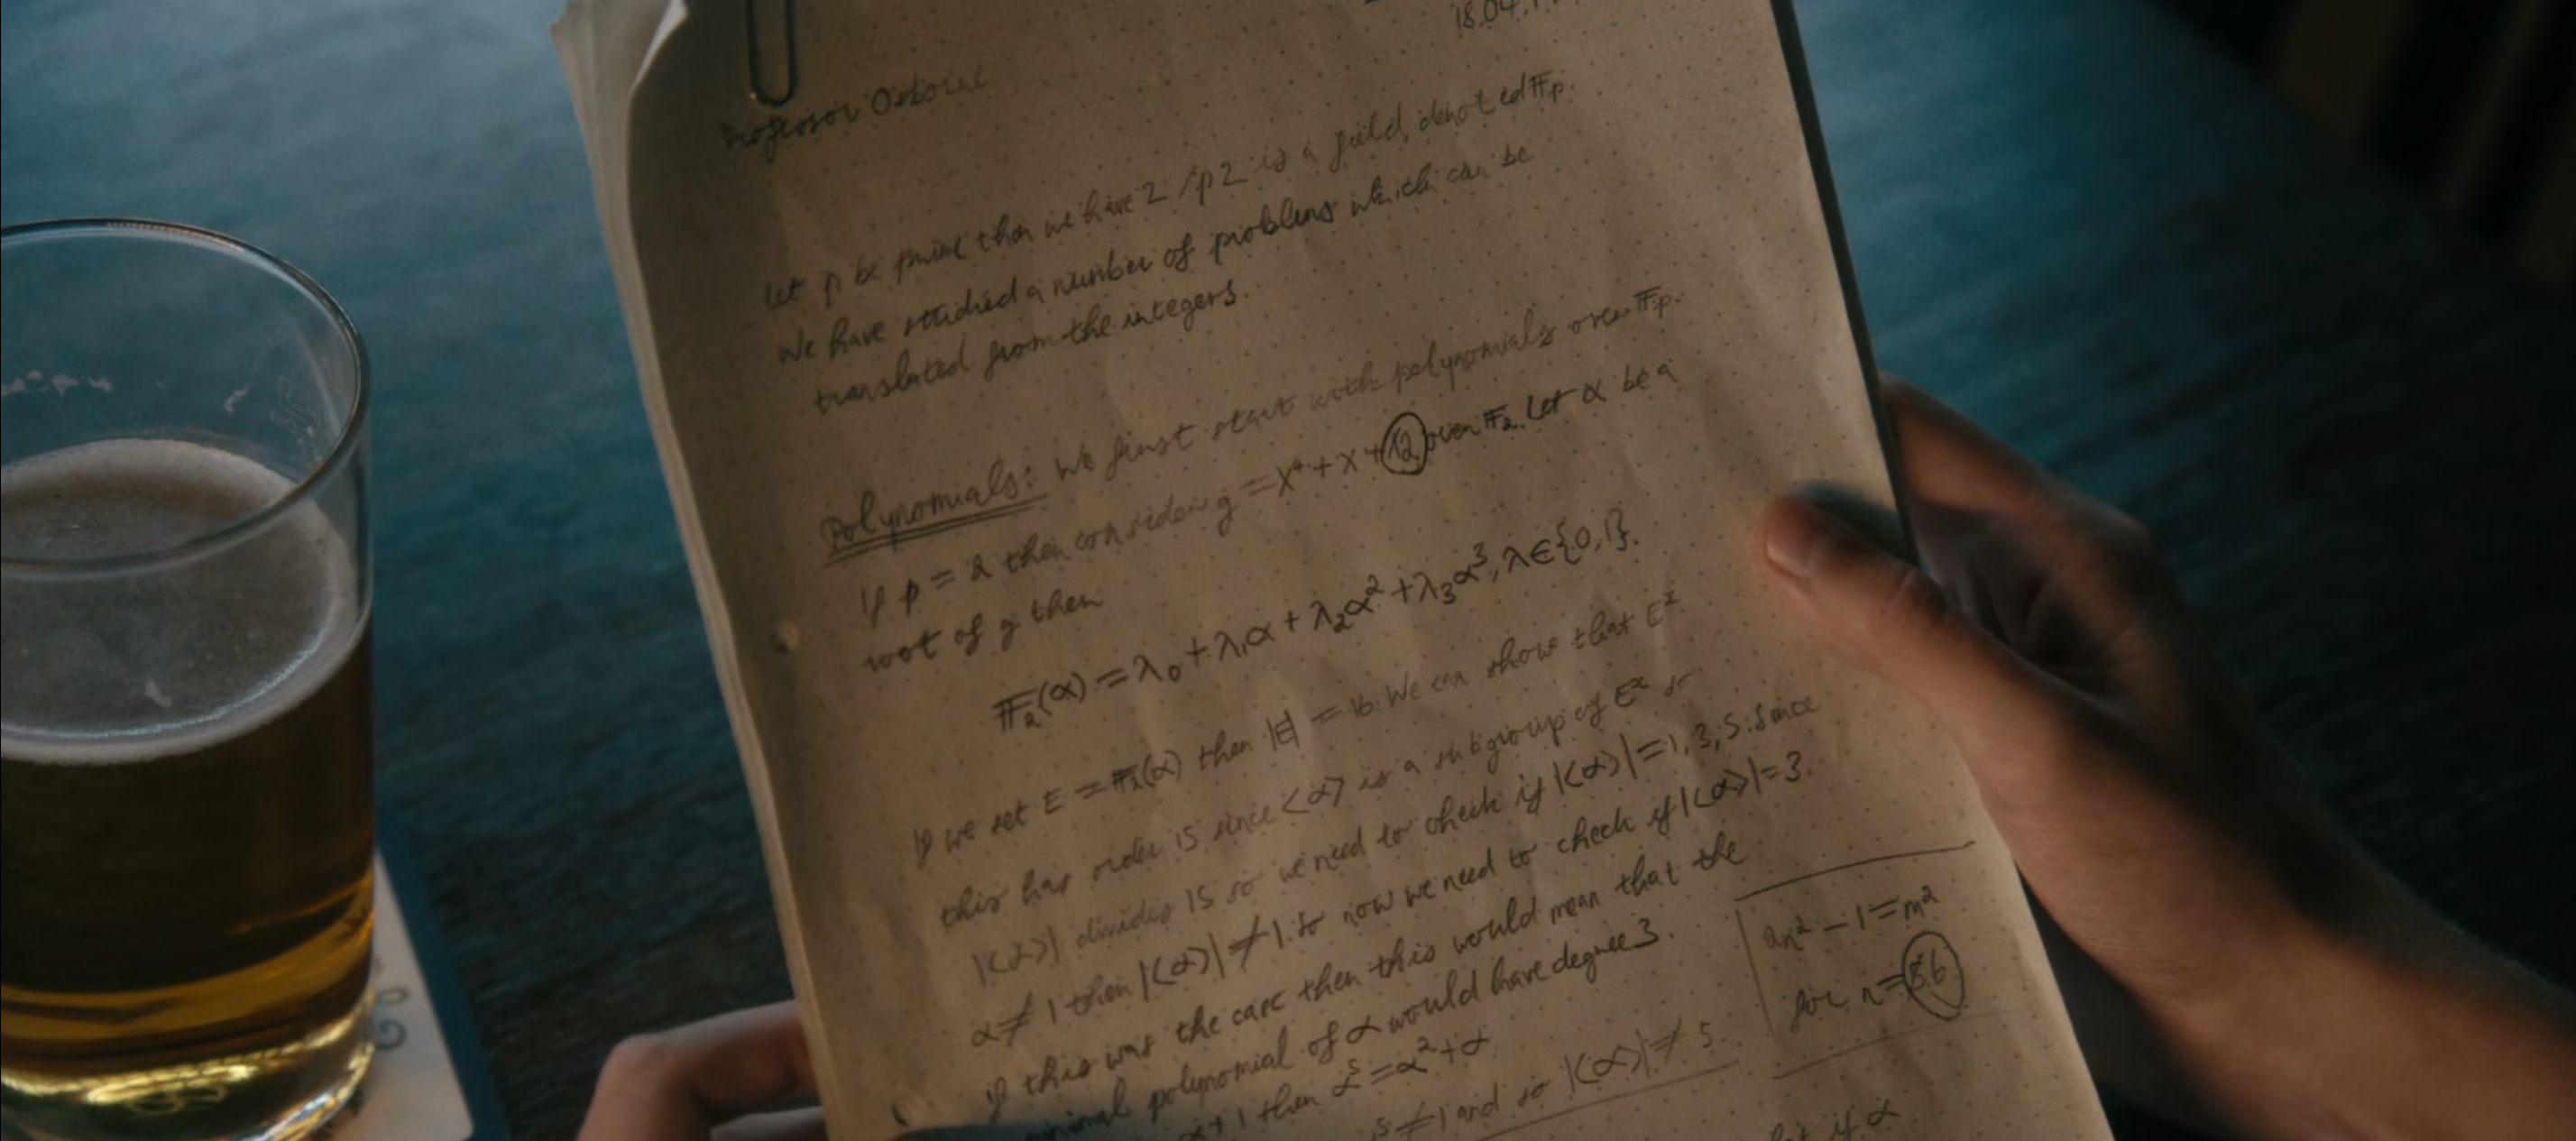 18.04.1
Professor Osborne
Let p be prime then we have Z/pZ is a field, denoted 𝔽p.
We have studied a number of problems which can be
translated from the integers.
Polynomials: We first start with polynomials over 𝔽p.
If p = 2 then consider g = x⁴ + x + 12 over 𝔽₂. Let α be a
root of g then
𝔽₂(α) = λ₀ + λ₁α + λ₂α² + λ₃α³, λ ∈ {0,1}.
If we set E = 𝔽₂(α) then |E| = 16. We can show that Eˣ
this has order 15 since ⟨α⟩ is a subgroup of Eˣ so
|⟨α⟩| divides 15 so we need to check if |⟨α⟩| = 1, 3, 5. Since
α ≠ 1 then |⟨α⟩| ≠ 1. So now we need to check if |⟨α⟩| = 3.
If this was the case then this would mean that the
minimal polynomial of α would have degree 3.
α + 1 then α⁵ = α² + α
⁵ ≠ 1 and so |⟨α⟩| ≠ 5.
2n² − 1 = m²
for n = 86
if α